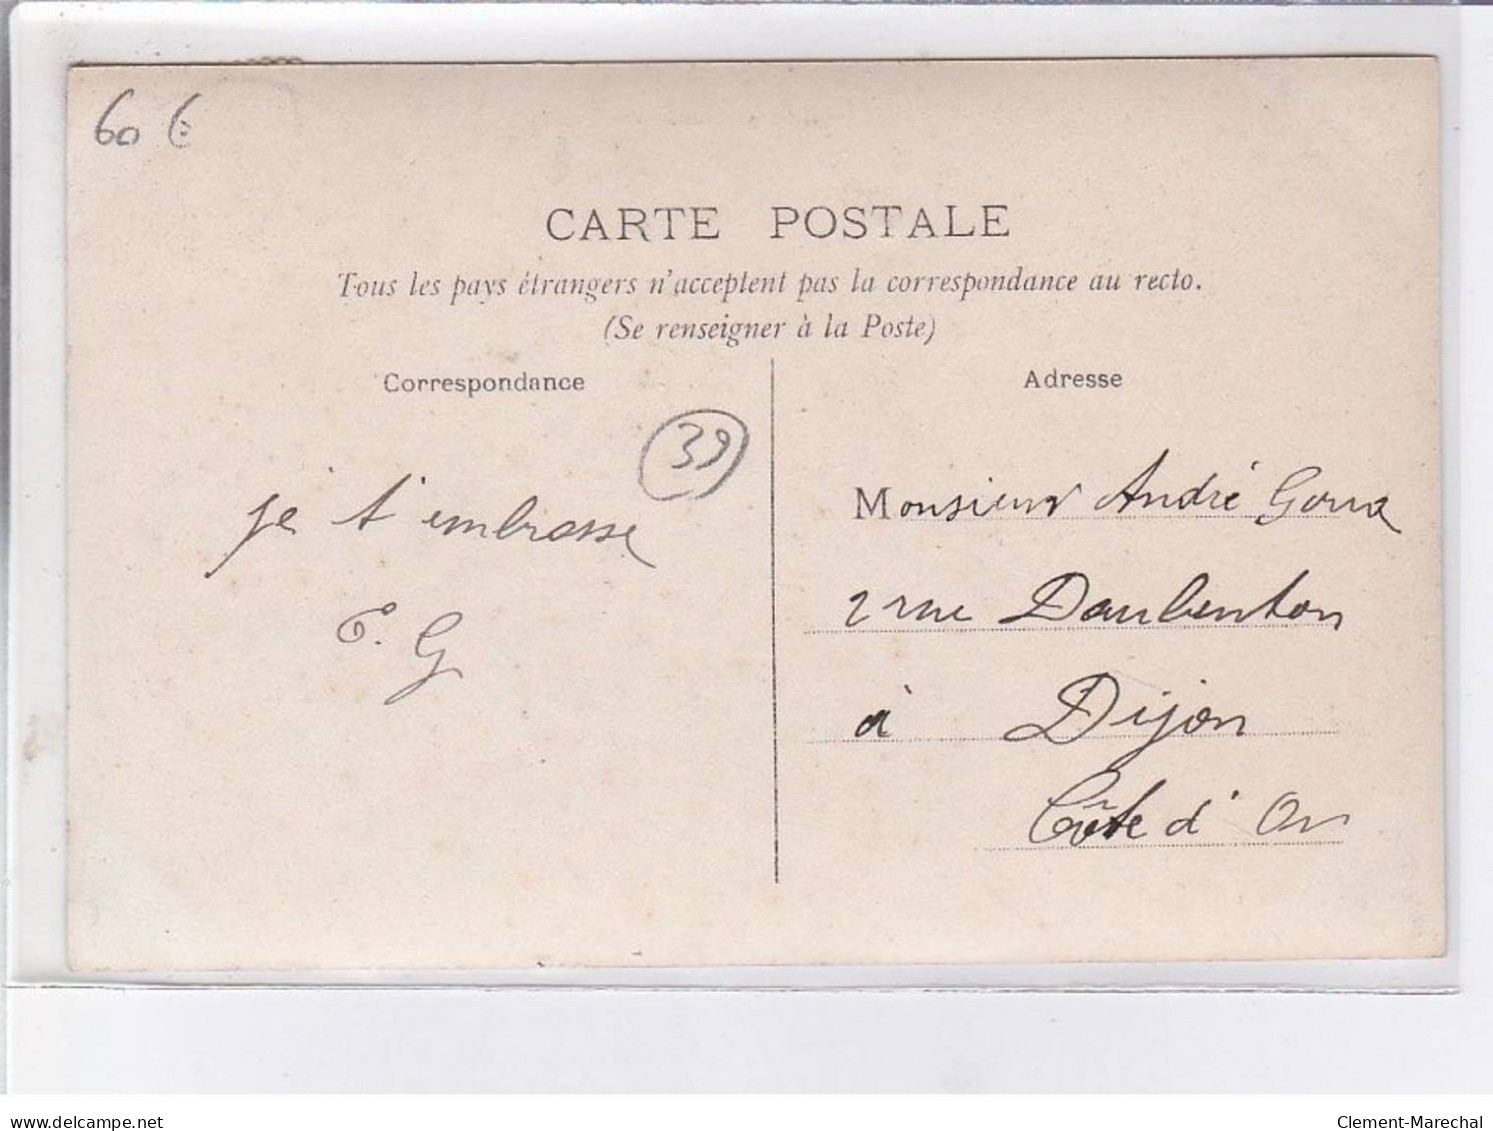 60 €
CARTE POSTALE
Tous les pays étrangers n'acceptent pas la correspondance au recto.
(Se renseigner à la Poste)
Correspondance
Adresse
39
je t'embrasse
E. G
Monsieur André
2 rue Daubenton
à Dijon
Côte d'Or
www.delcampe.net
Clement-Marechal